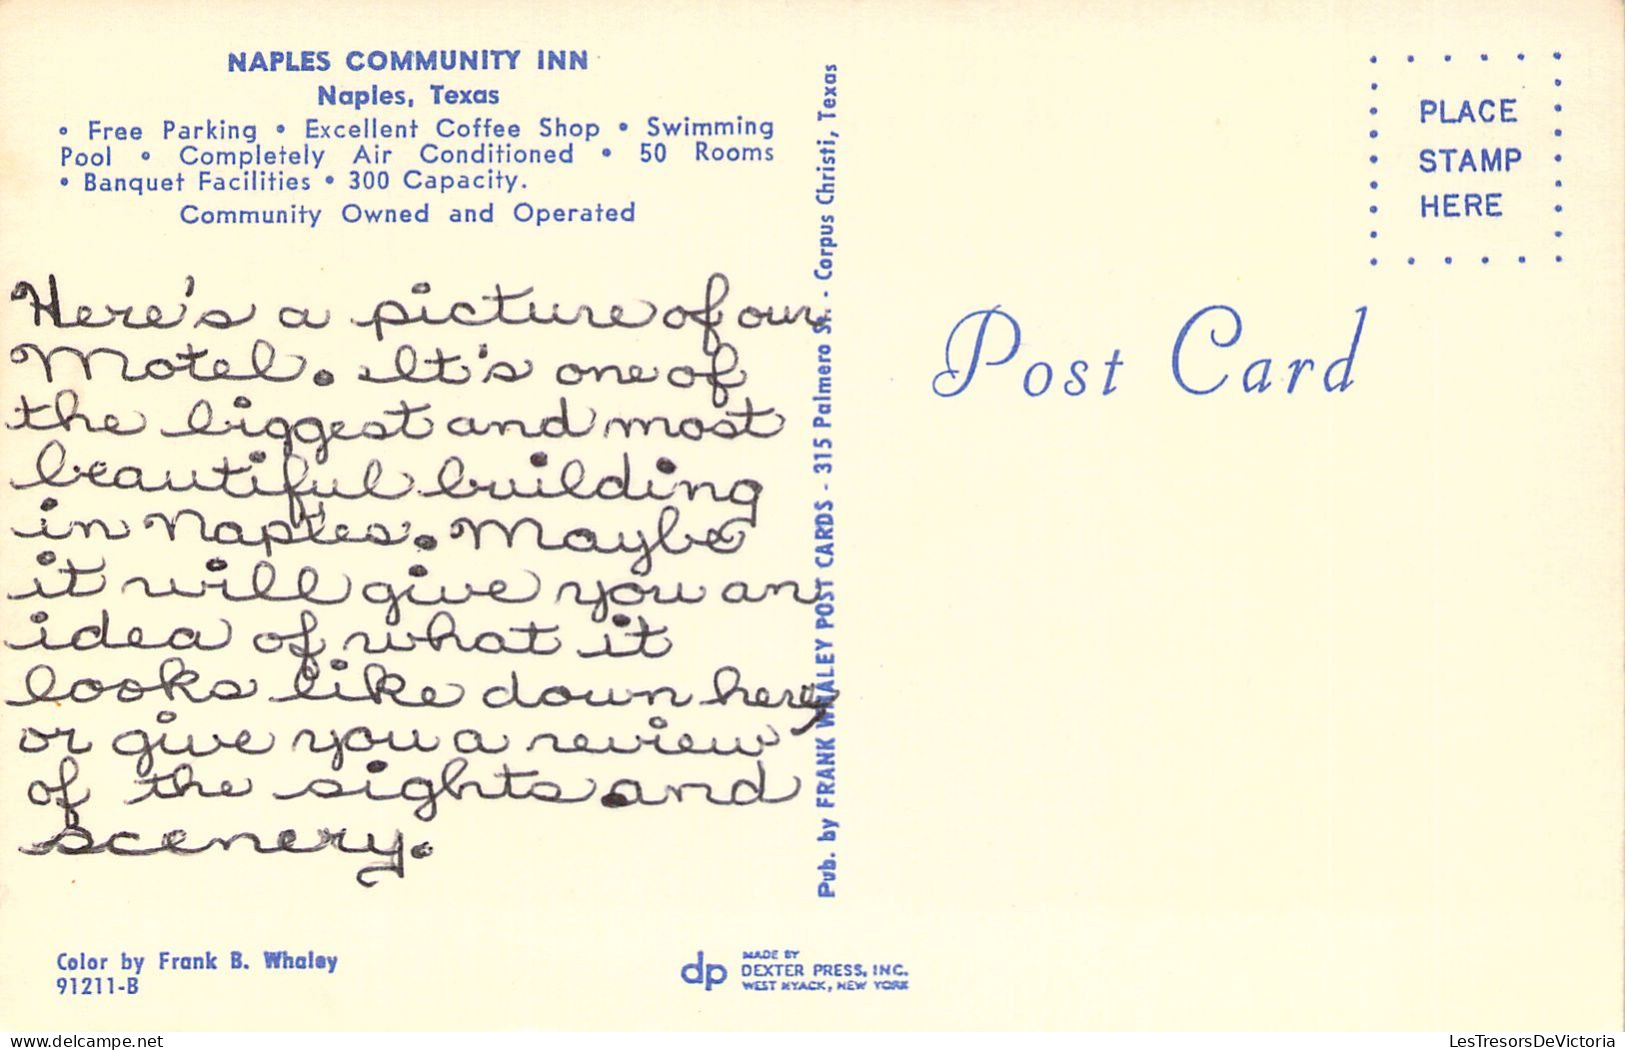 NAPLES COMMUNITY INN
Naples, Texas
• Free Parking • Excellent Coffee Shop • Swimming
Pool • Completely Air Conditioned • 50 Rooms
• Banquet Facilities • 300 Capacity.
Community Owned and Operated
Here's a picture of our
Motel. It's one of
the biggest and most
beautiful building
in Naples. Maybe
it will give you an
idea of what it
looks like down here,
or give you a review
of the sights and
scenery.
Color by Frank B. Whaley
91211-B
Pub. by FRANK WHALEY POST CARDS - 315 Palmero St. - Corpus Christi, Texas
dp
MADE BY
DEXTER PRESS, INC.
WEST NYACK, NEW YORK
PLACE
STAMP
HERE
Post Card
delcampe.net
LesTresorsDeVictoria